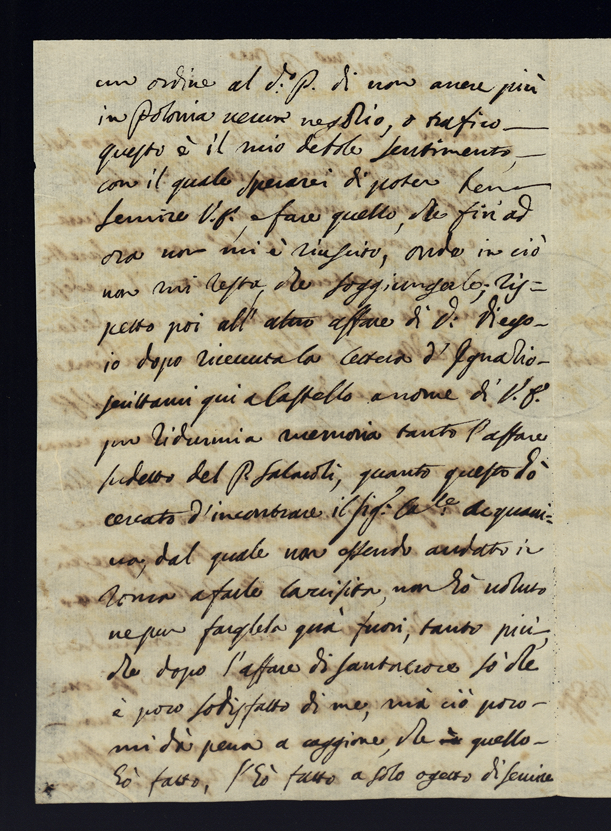 un ordine al d.o P. di non avere più
in Polonia verun negozio, o trafico
questo è il mio debole sentimento,
con il quale sperarei di poter ben
servire V.S., e fare quello, che fin'ad
ora non mi è riuscito, onde in ciò
non mi resta, che soggiungerle; ris=
petto poi all'altro affare di D. Diego
io dopo ricevuta la lettera d'Ignazio
scrittami qui a Castello a nome di V.S.
per ridurmi a memoria tanto l'affare
sudetto del P. Salaroli, quanto questo hò
cercato d'incontrare il Sig.r Ca.le Acquavi=
va, dal quale non essendo andato in
Roma a farle la visita, non hò voluto
nepur fargliela quà fuori, tanto più,
che dopo l'affare di Santacroce sò che
è poco sodisfatto di me, mà ciò poco
mi dà pena a caggione, che quello
hò fatto, l'hò fatto a solo ogetto di servire